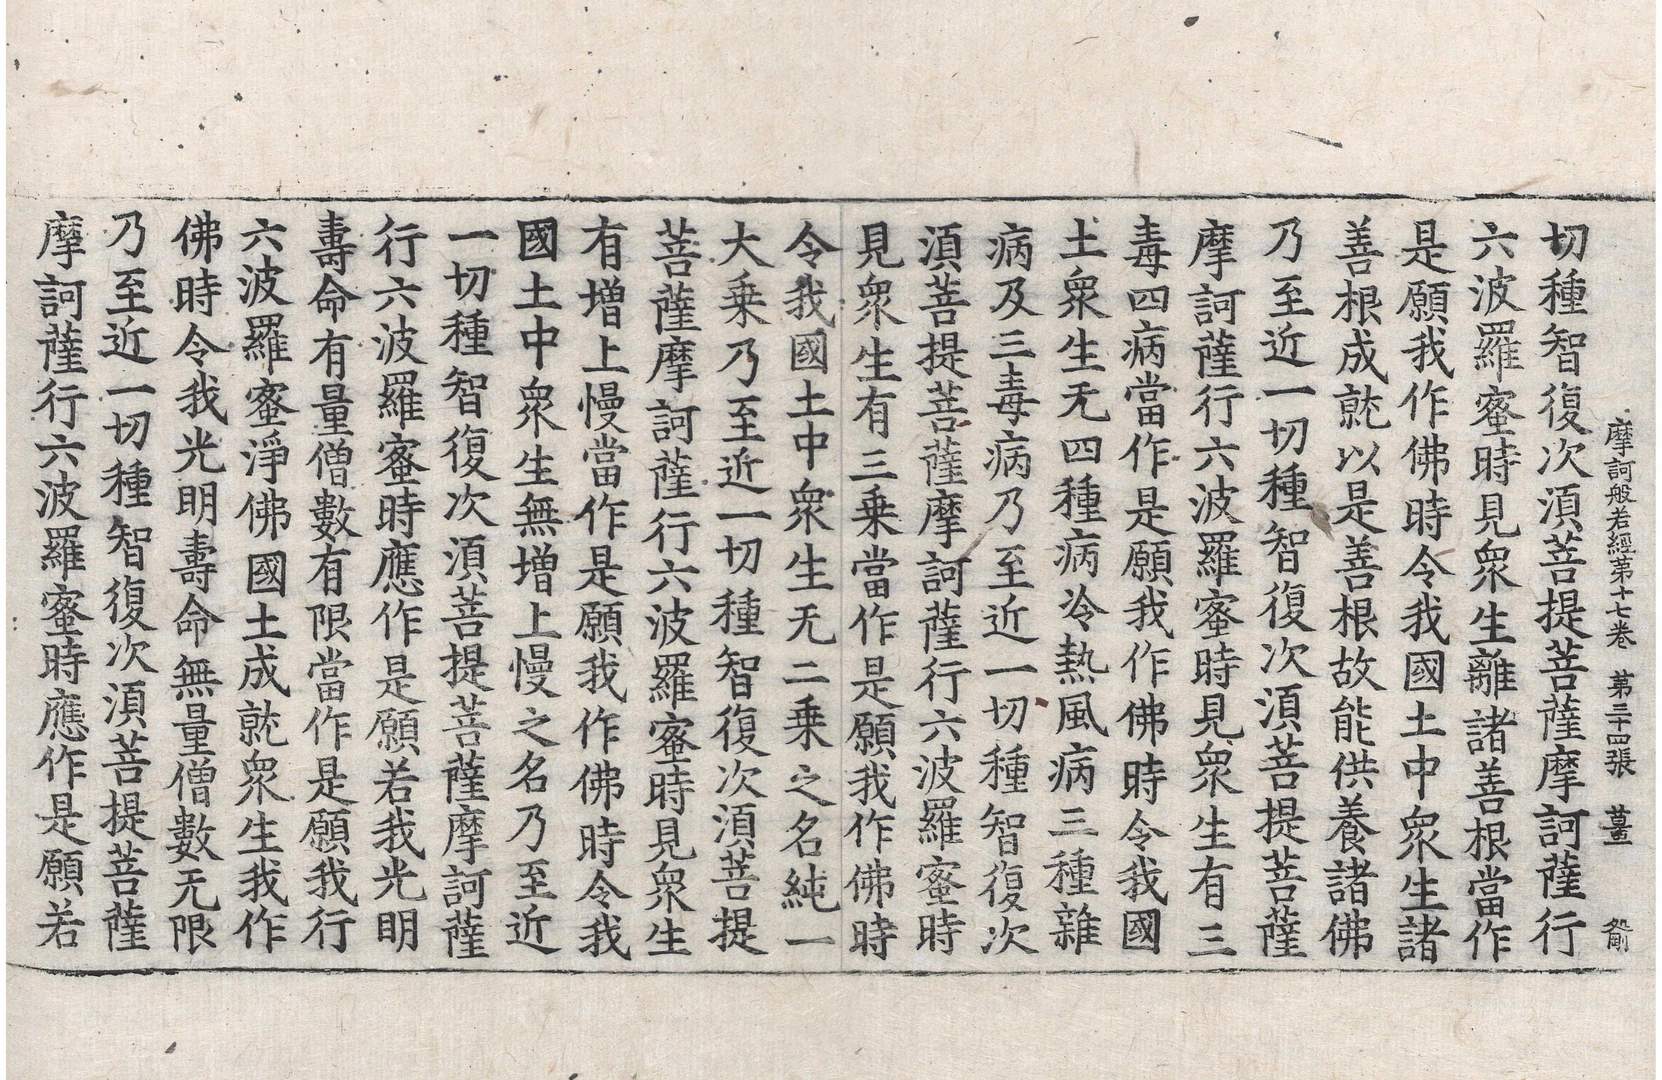 摩訶般若經第十七卷 第三十四張 薑
切種智復次湏菩提菩薩摩訶薩行
六波羅蜜時見衆生離諸善根當作
是願我作佛時令我國土中衆生諸
善根成就以是善根故能供養諸佛
乃至近一切種智復次湏菩提菩薩
摩訶薩行六波羅蜜時見衆生有三
毒四病當作是願我作佛時令我國
土衆生无四種病冷熱風病三種雜
病及三毒病乃至近一切種智復次
湏菩提菩薩摩訶薩行六波羅蜜時
見衆生有三乗當作是願我作佛時
令我國土中衆生无二乗之名純一
大乗乃至近一切種智復次湏菩提
菩薩摩訶薩行六波羅蜜時見衆生
有增上慢當作是願我作佛時令我
國土中衆生無增上慢之名乃至近
一切種智復次湏菩提菩薩摩訶薩
行六波羅蜜時應作是願若我光明
壽命有量僧數有限當作是願我行
六波羅蜜淨佛國土成就衆生我作
佛時令我光明壽命無量僧數无限
乃至近一切種智復次湏菩提菩薩
摩訶薩行六波羅蜜時應作是願若